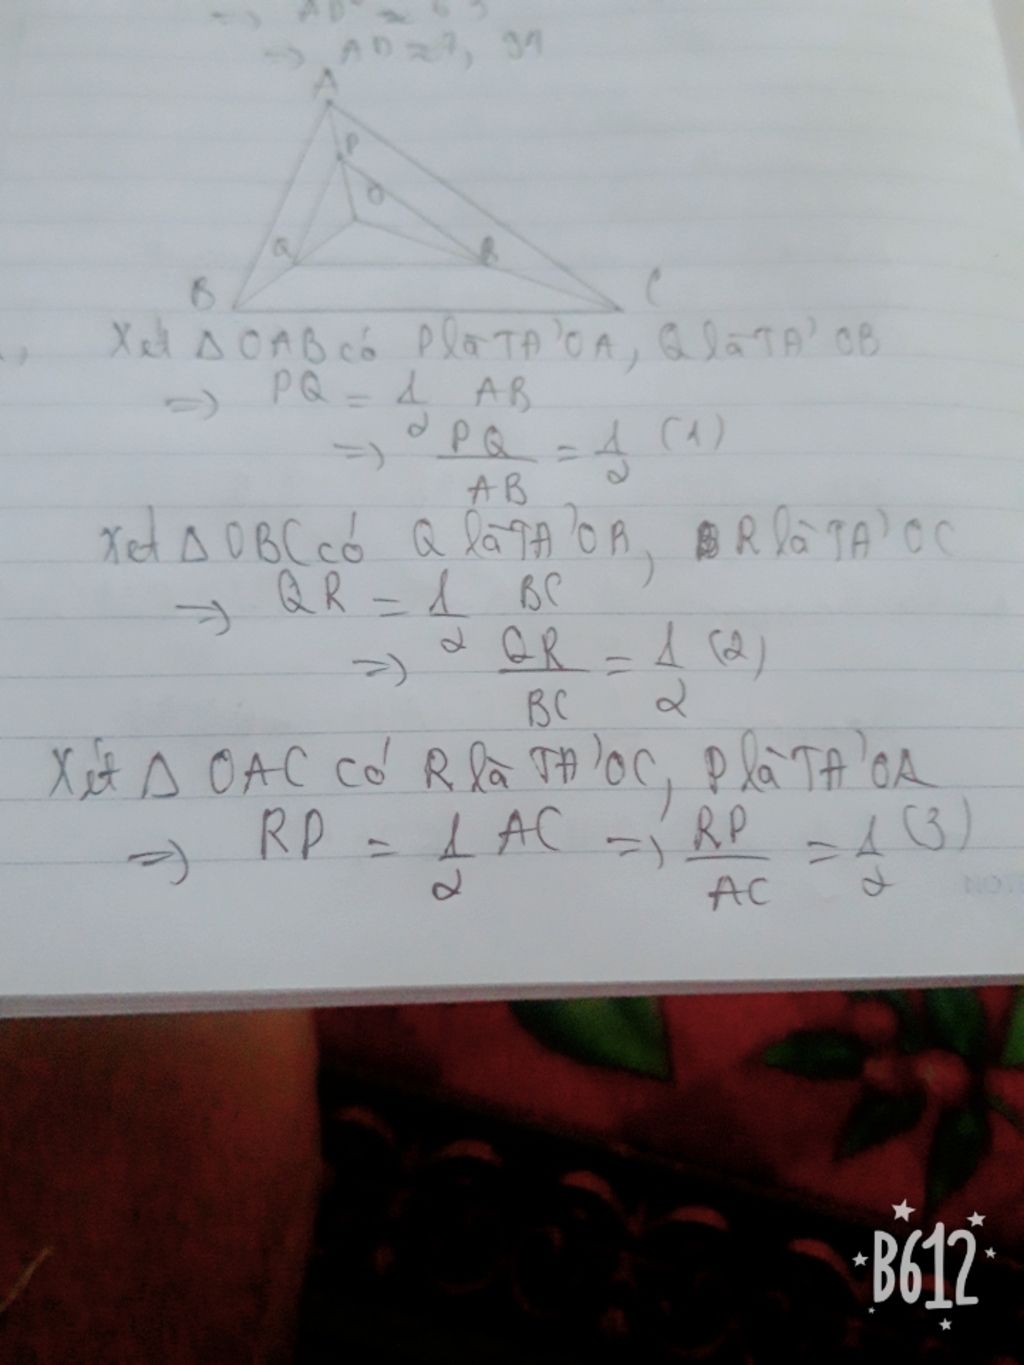 => AD ≈ 7, 91
A
P
O
Q
R
B
C
Xét Δ OAB có P là TĐ' OA, Q là TĐ' OB
=> PQ = 1/2 AB
=> PQ/AB = 1/2 (1)
Xét Δ OBC có Q là TĐ' OB, R là TĐ' OC
=> QR = 1/2 BC
=> QR/BC = 1/2 (2)
Xét Δ OAC có R là TĐ' OC, P là TĐ' OA
=> RP = 1/2 AC => RP/AC = 1/2 (3)
B612